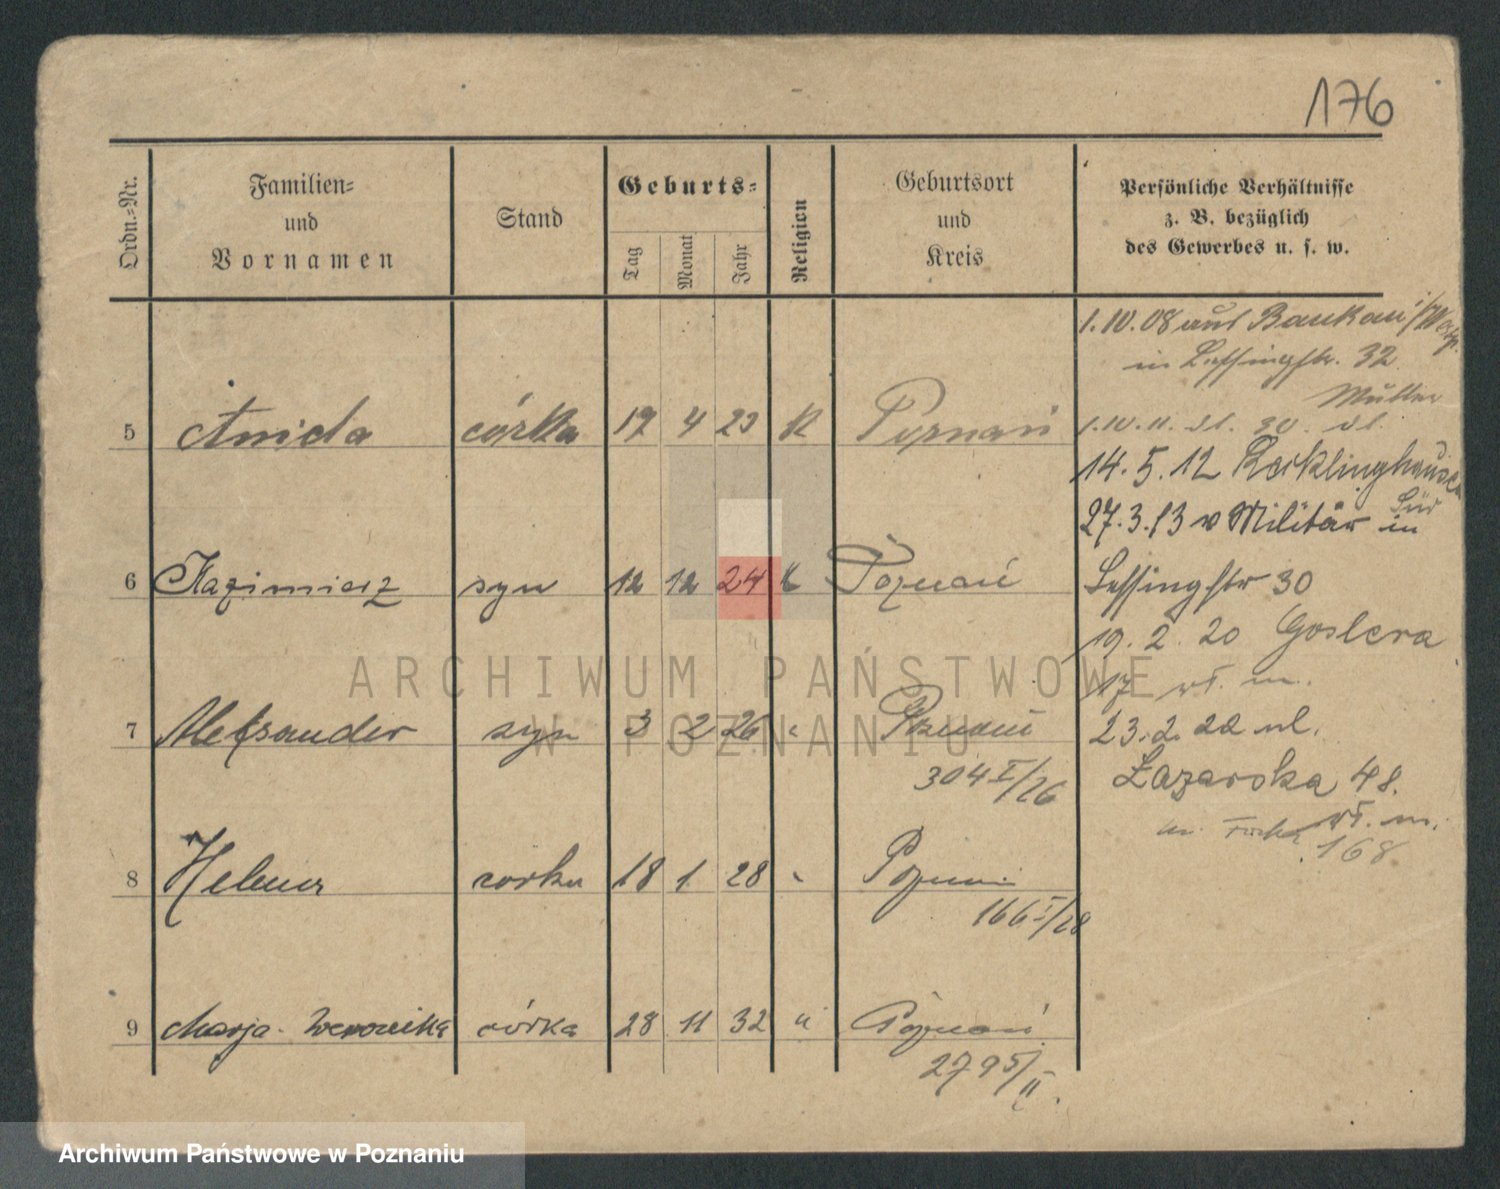 176
Ordn.-Nr.
Familien-
und
Vornamen
Stand
Geburts-
Tag
Monat
Jahr
Religion
Geburtsort
und
Kreis
Persönliche Verhältnisse
z. B. bezüglich
des Gewerbes u. s. w.
1.10.08 aus Baukau i/W
in Lessingstr. 32
Mutter
5 córka 17 4 23 K Poznań
1.10.11. 30.
14.5.12 Recklinghausen
Süd
27.3.13 v Militär in
6 Kazimierz syn 12 12 24 K Poznań
Lessingstr 30
19.2.20 Goslera
17 wł. m.
7 Aleksander syn 3 2 26 " Poznań
304 I/26
23.2.22 ul.
Łazarska 48.
wł. m.
168
8 Helena córka 18 1 28 " Poznań
166 I/28
9 Marja Weronika córka 28 11 32 " Poznań
2795/II.
ARCHIWUM PAŃSTWOWE
W POZNANIU
Archiwum Państwowe w Poznaniu